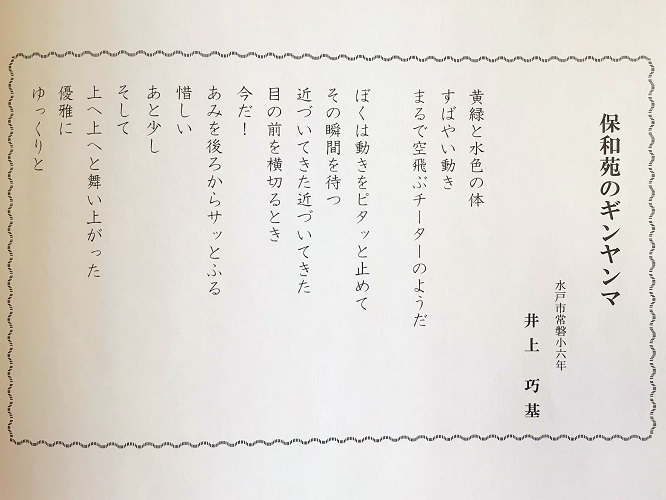 保和苑のギンヤンマ
水戸市常磐小六年
井上 巧基
黄緑と水色の体
すばやい動き
まるで空飛ぶチーターのようだ
ぼくは動きをピタッと止めて
その瞬間を待つ
近づいてきた近づいてきた
目の前を横切るとき
今だ！
あみを後ろからサッとふる
惜しい
あと少し
そして
上へ上へと舞い上がった
優雅に
ゆっくりと